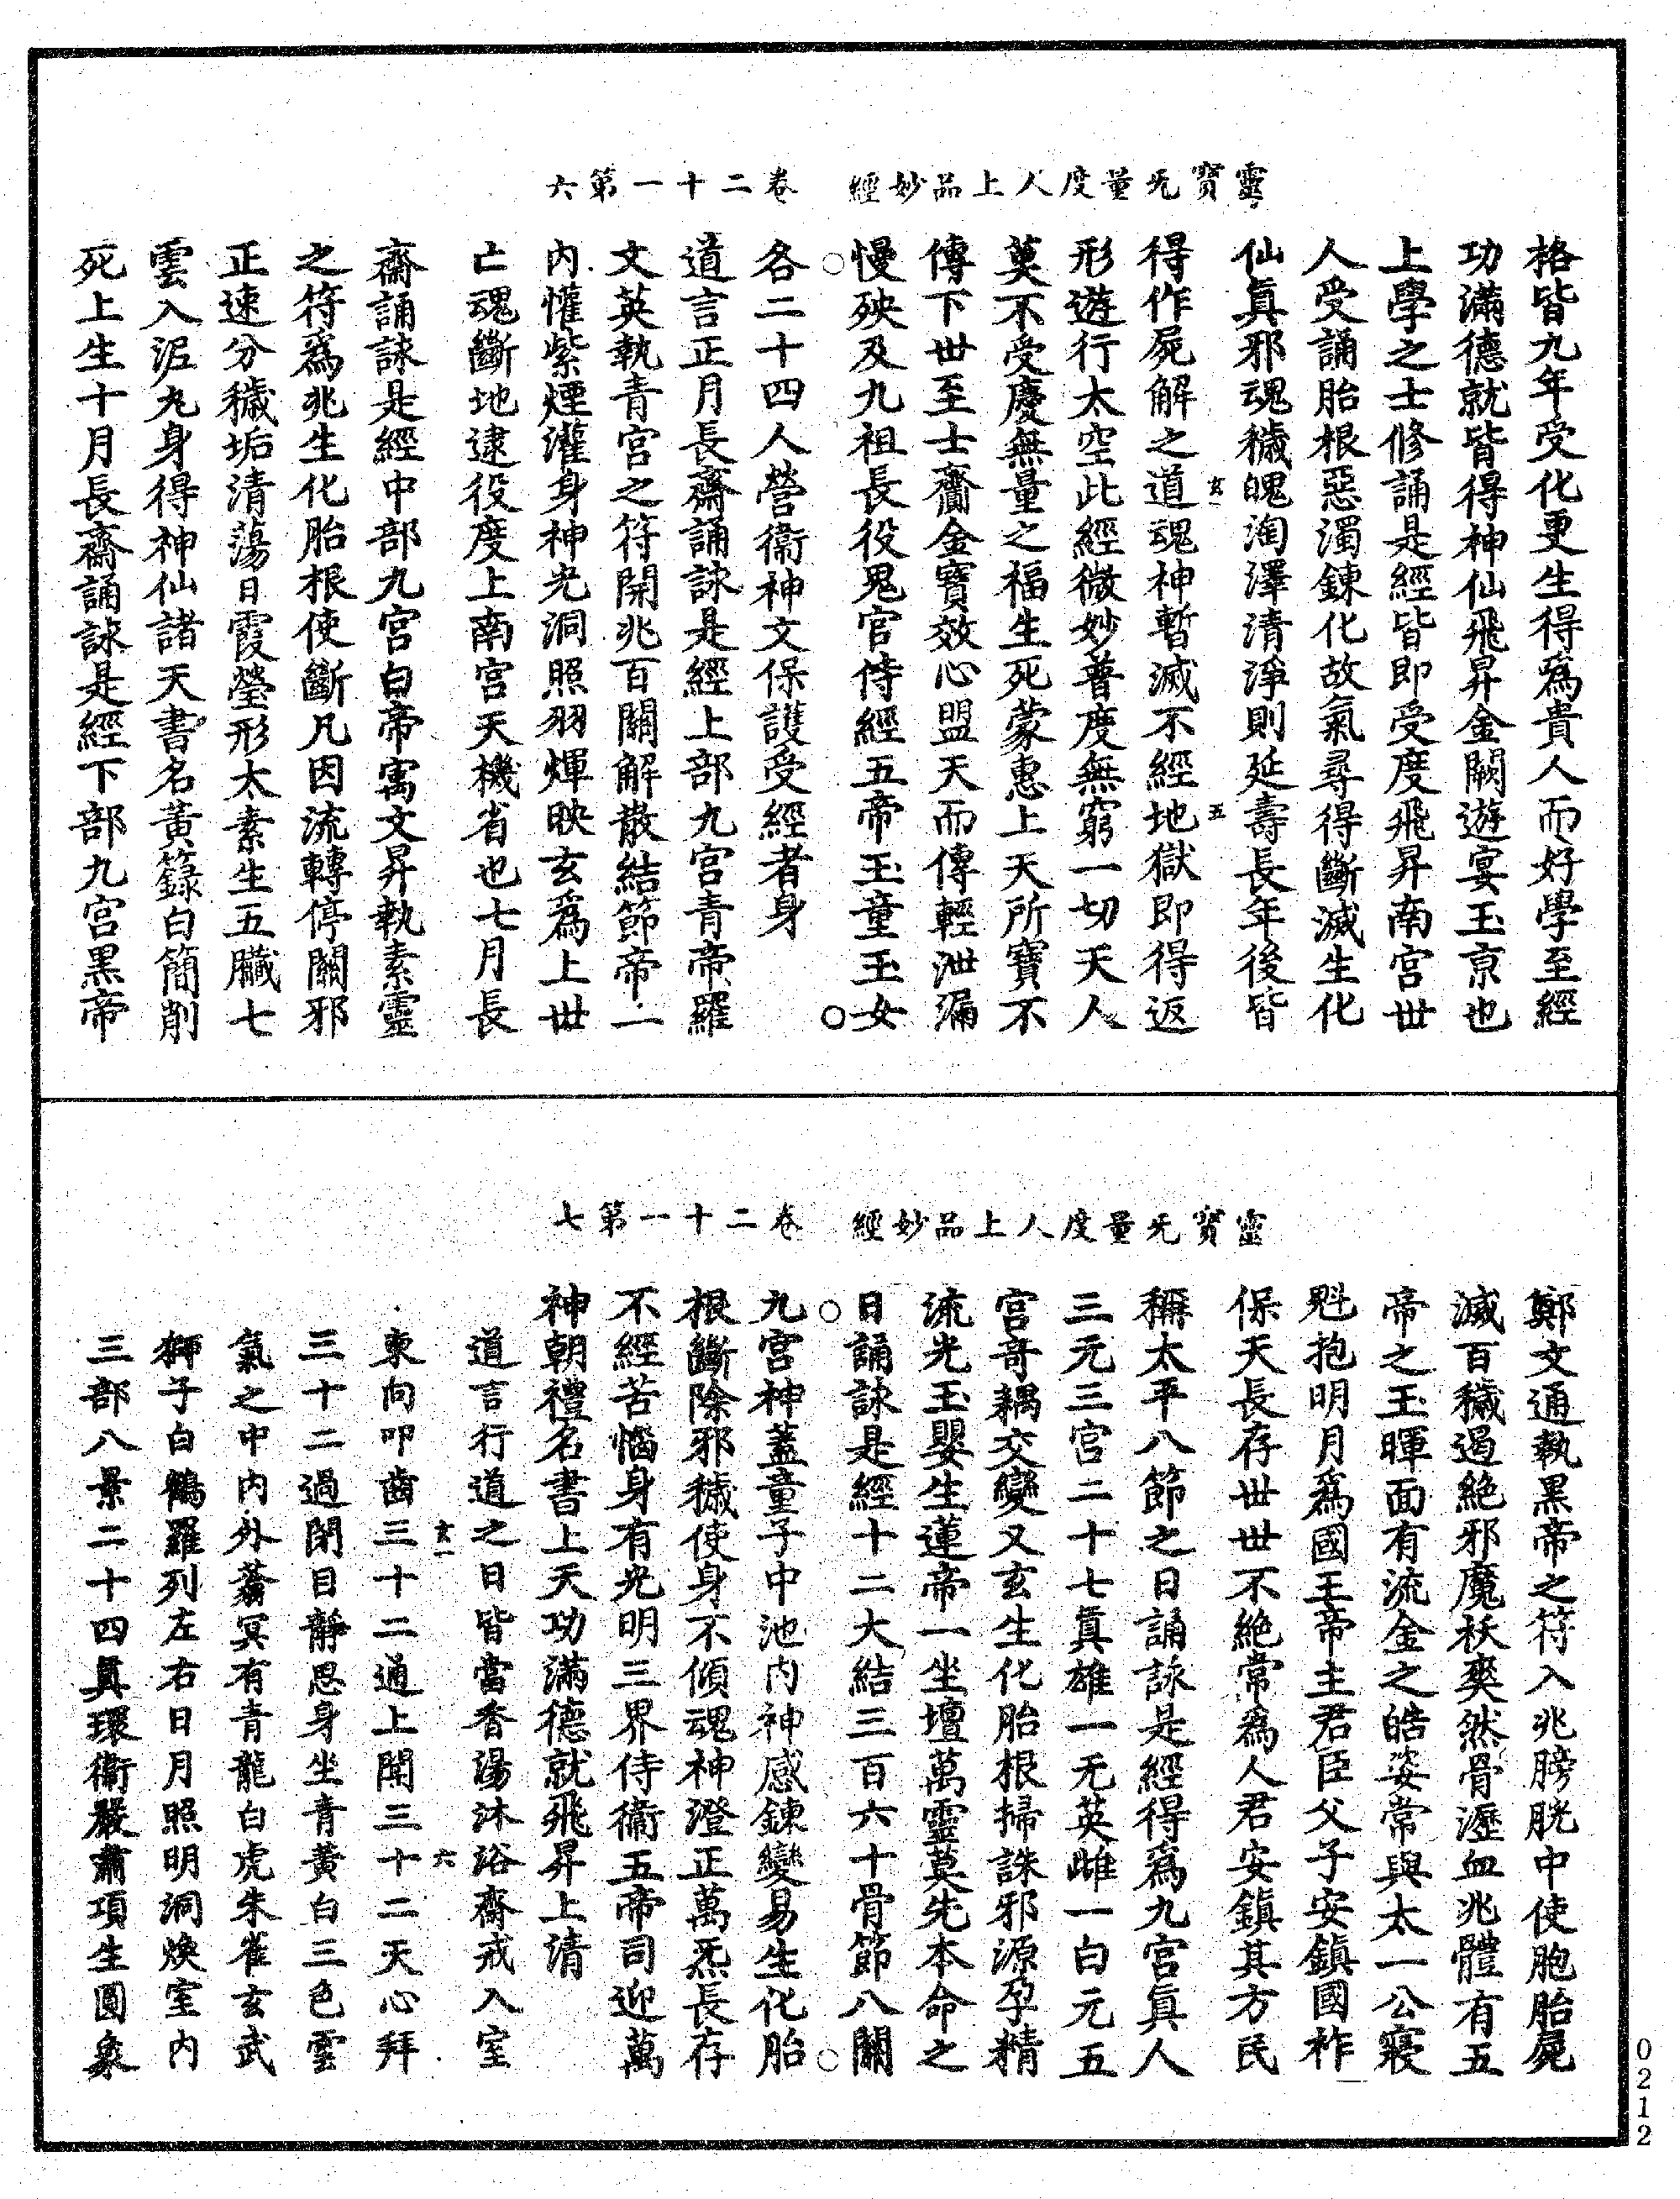 靈寶旡量度人上品妙經　卷二十一第六
格皆九年受化更生得爲貴人而好學至經
功滿德就皆得神仙飛昇金闕遊宴玉京也
上學之士修誦是經皆即受度飛昇南宮世
人受誦胎根惡濁鍊化故氣尋得斷滅生化
仙眞邪魂穢魄洵澤清淨則延壽長年後皆
玄一　五
得作屍解之道魂神暫滅不經地獄即得返
形遊行太空此經微妙普度無窮一切天人
莫不受慶無量之福生死蒙惠上天所寶不
傳下世至士齎金寶效心盟天而傳輕泄漏
慢殃及九祖長役鬼官侍經五帝玉童玉女
各二十四人營衞神文保護受經者身
道言正月長齋誦詠是經上部九宮青帝羅
文英執青宮之符開兆百關解散結節帝一
內懽紫煙灌身神光洞照羽煇映玄爲上世
亡魂斷地逮役度上南宮天機省也七月長
齋誦詠是經中部九宮白帝寓文昇執素靈
之符爲兆生化胎根使斷凡因流轉停關邪
正速分穢垢清蕩日霞瑩形太素生五臟七
雲入泥丸身得神仙諸天書名黃籙白簡削
死上生十月長齋誦詠是經下部九宮黑帝
靈寶旡量度人上品妙經　卷二十一第七
鄭文通執黑帝之符入兆膀胱中使胞胎屍
滅百穢遏絕邪魔袄爽然骨瀝血兆體有五
帝之玉暉面有流金之皓姿常與太一公寢
魁抱明月爲國王帝主君臣父子安鎮國祚
保天長存世世不絕常爲人君安鎮其方民
稱太平八節之日誦詠是經得爲九宮眞人
三元三宮二十七眞雄一无英雌一白元五
宮奇耦交變又玄生化胎根掃誅邪源孕精
流光玉嬰生蓮帝一坐壇萬靈莫先本命之
日誦詠是經十二大結三百六十骨節八關
九宮神蓋童子中池內神感鍊變易生化胎
根斷除邪穢使身不傾魂神澄正萬炁長存
不經苦惱身有光明三界侍衞五帝司迎萬
神朝禮名書上天功滿德就飛昇上清
道言行道之日皆當香湯沐浴齋戒入室
玄一　六
東向叩齒三十二通上聞三十二天心拜
三十二過閉目靜思身坐青黃白三色雲
氣之中內外蓊冥有青龍白虎朱雀玄武
獅子白鶴羅列左右日月照明洞煥室內
三部八景二十四眞環衞嚴肅項生圓象
0212